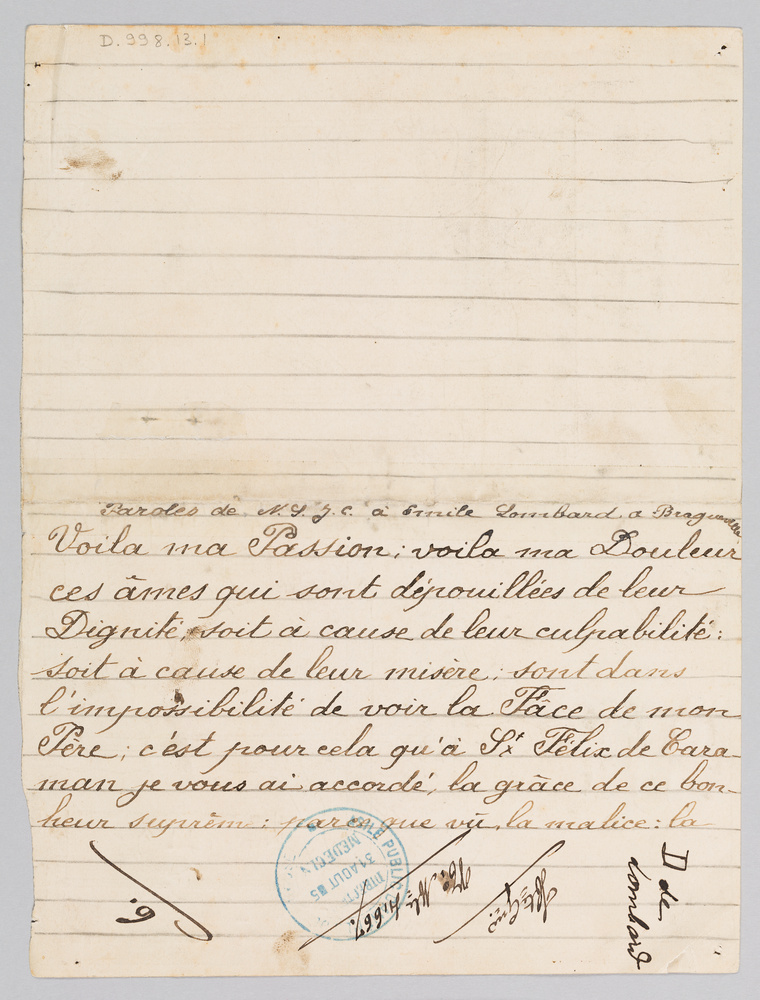 D.998.13.1
Paroles de N. S. J. C. à Emile Lombard, a
Voila ma Passion; voila ma Douleur
ces âmes qui sont dépouillées de leur
Dignité, soit à cause de leur culpabilité:
soit à cause de leur misère; sont dans
l'impossibilité de voir la Fâce de mon
Père; c'est pour cela qu'à St Félix de Cara-
man je vous ai accordé, la grâce de ce bon-
heur suprêm: parceque vû, la malice: la
31 AOUT 85
MEDECIN
D de
Lombard
6.